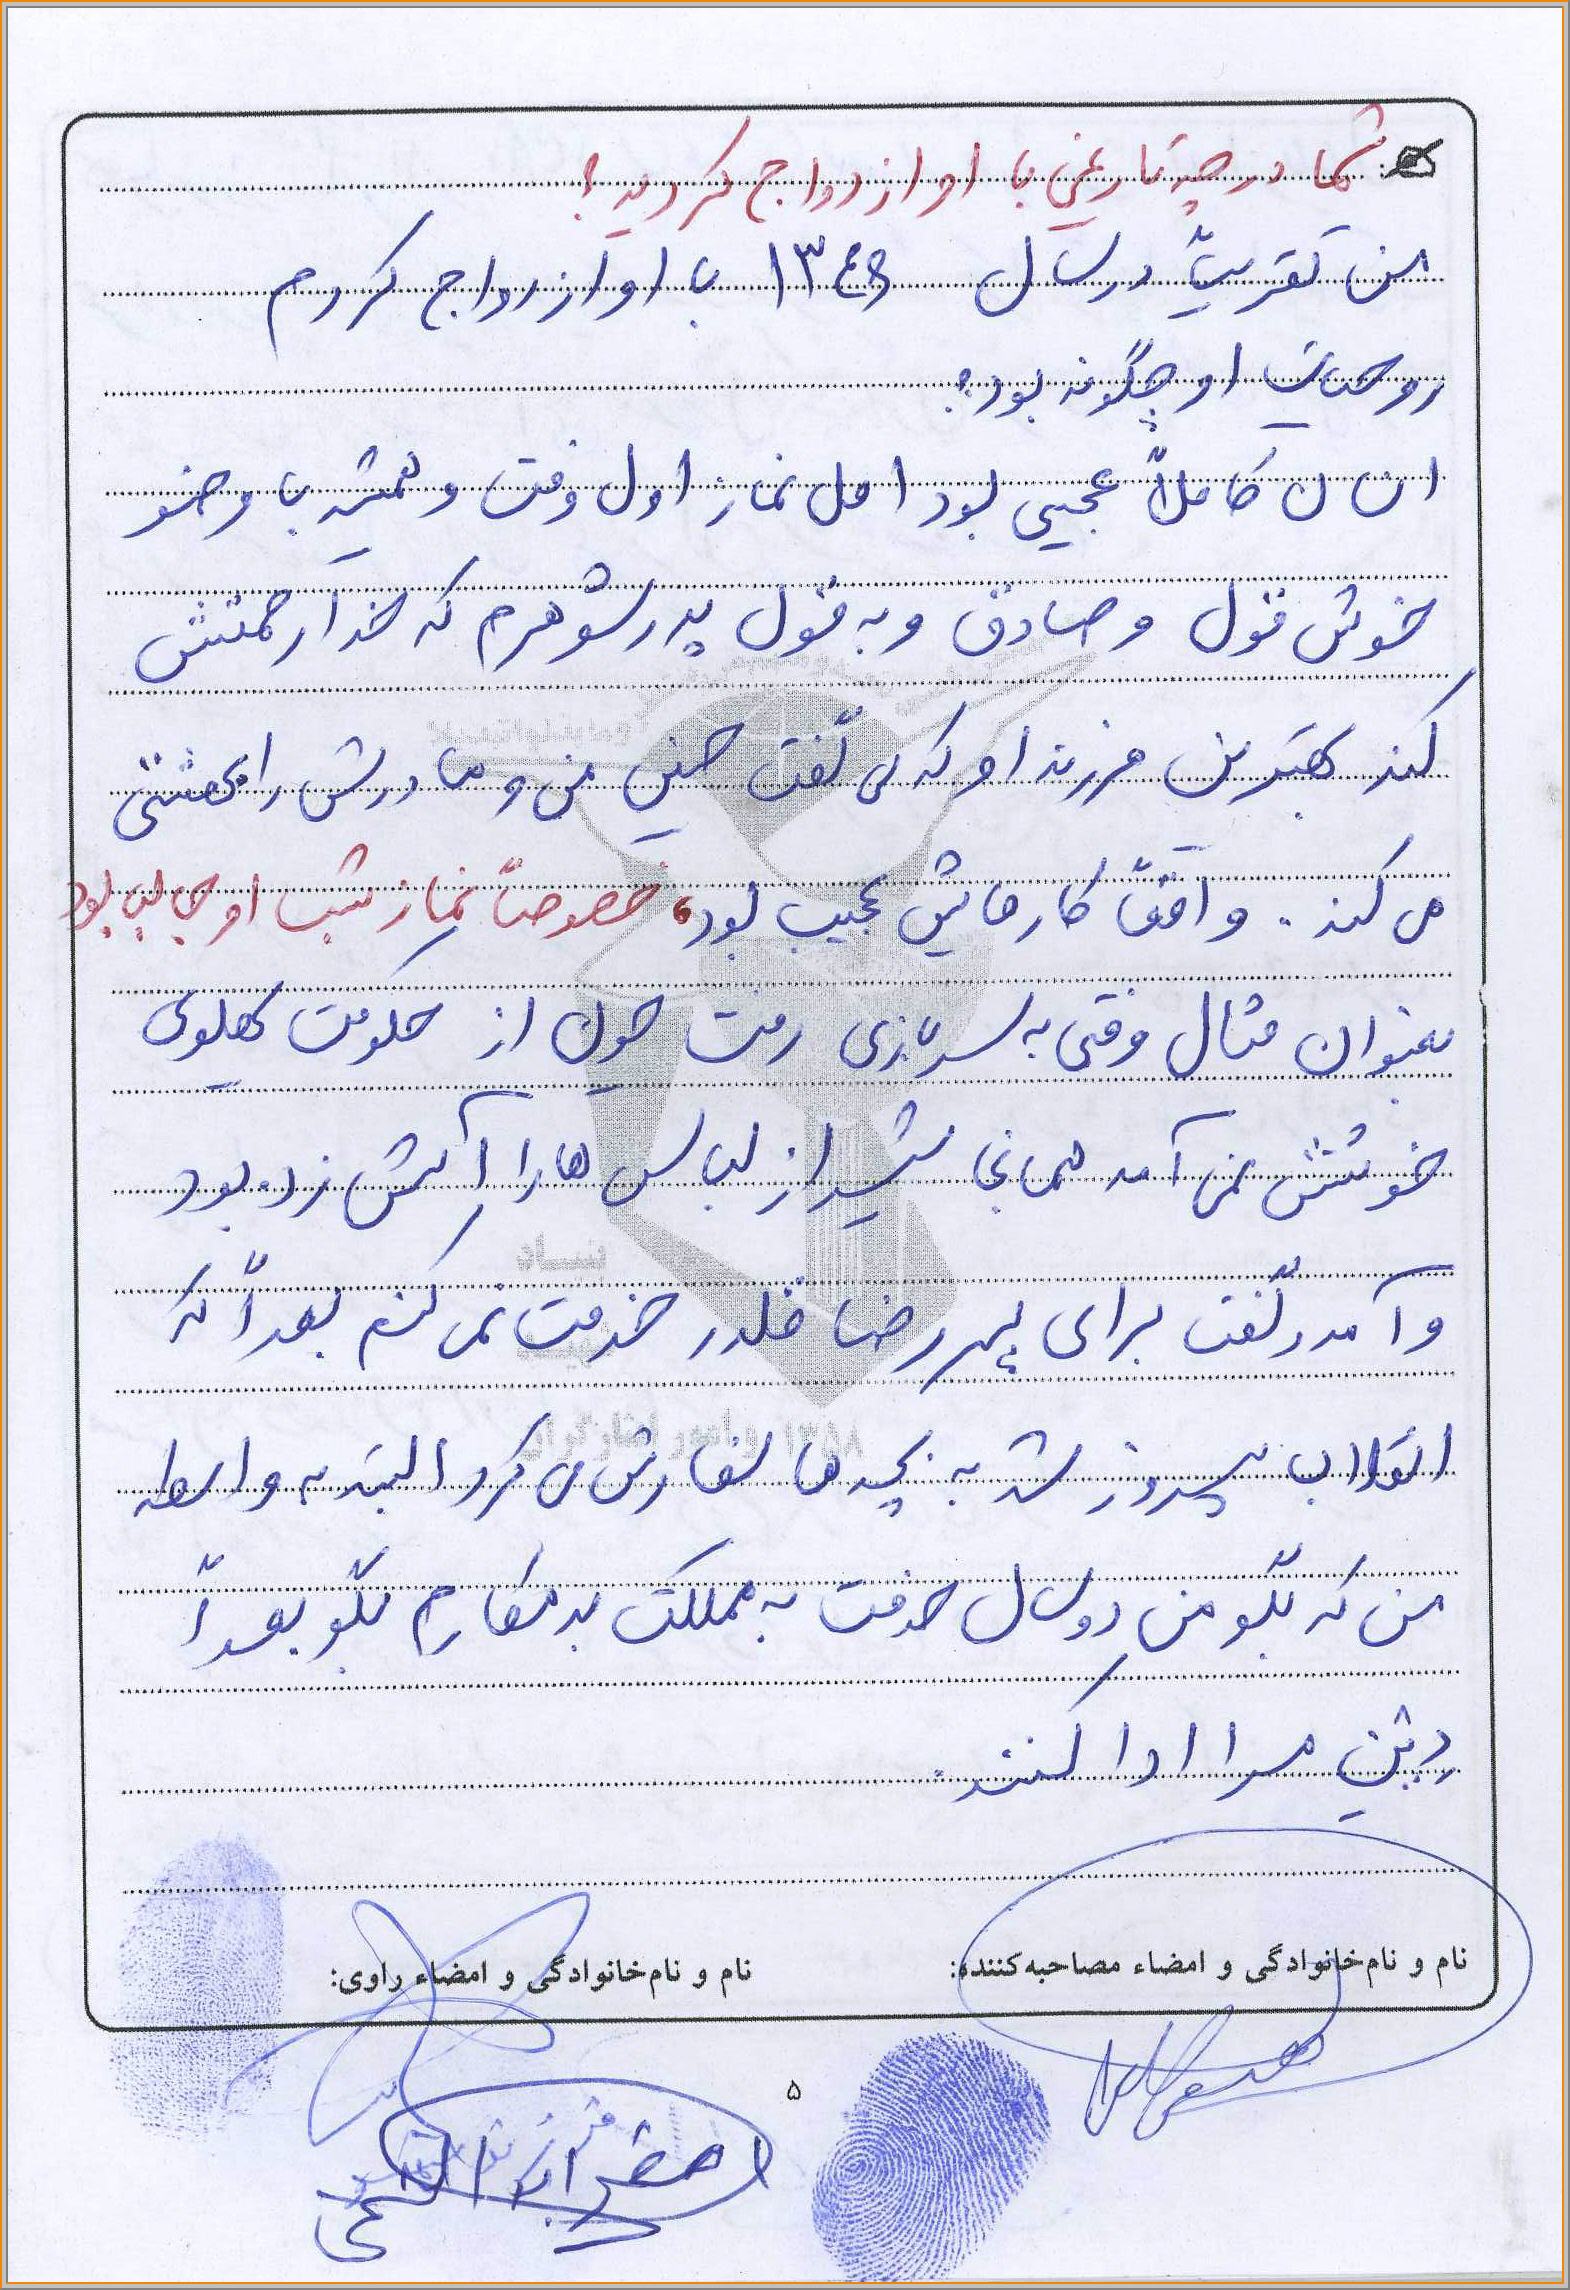 شما در چه تاریخی با او ازدواج کردید؟
من تقریباً در سال ١٣٤٥ با او ازدواج کردم
روحیات او چگونه بود؟
انسان کاملاً عجیبی بود اهل نماز اول وقت و همیشه با وضو
خوش قول و صادق و به قول پدر شوهرم که خدا رحمتش
کند بهترین فرزند او که می گفت خیلی من و مادرش را
می کند. واقعاً کارهایش عجیب بود، خصوصاً نماز شب او جالب بود
بعنوان مثال وقتی به سربازی رفت چون از حکومت پهلوی
خوشش نمی آمد همانجا شیراز لباس ها را آتش زده بود
و آمد و گفت برای پسر رضا قلدر خدمت نمی کنم بعداً که
انقلاب پیروز شد به بچه ها سفارش می کرد البته به واسطه
من که بگو من دو سال خدمت به مملکت بدهکارم بگو بعداً
دِین مرا ادا کنند.
نام و نام‌خانوادگی و امضاء مصاحبه‌کننده:
نام و نام‌خانوادگی و امضاء راوی:
۵